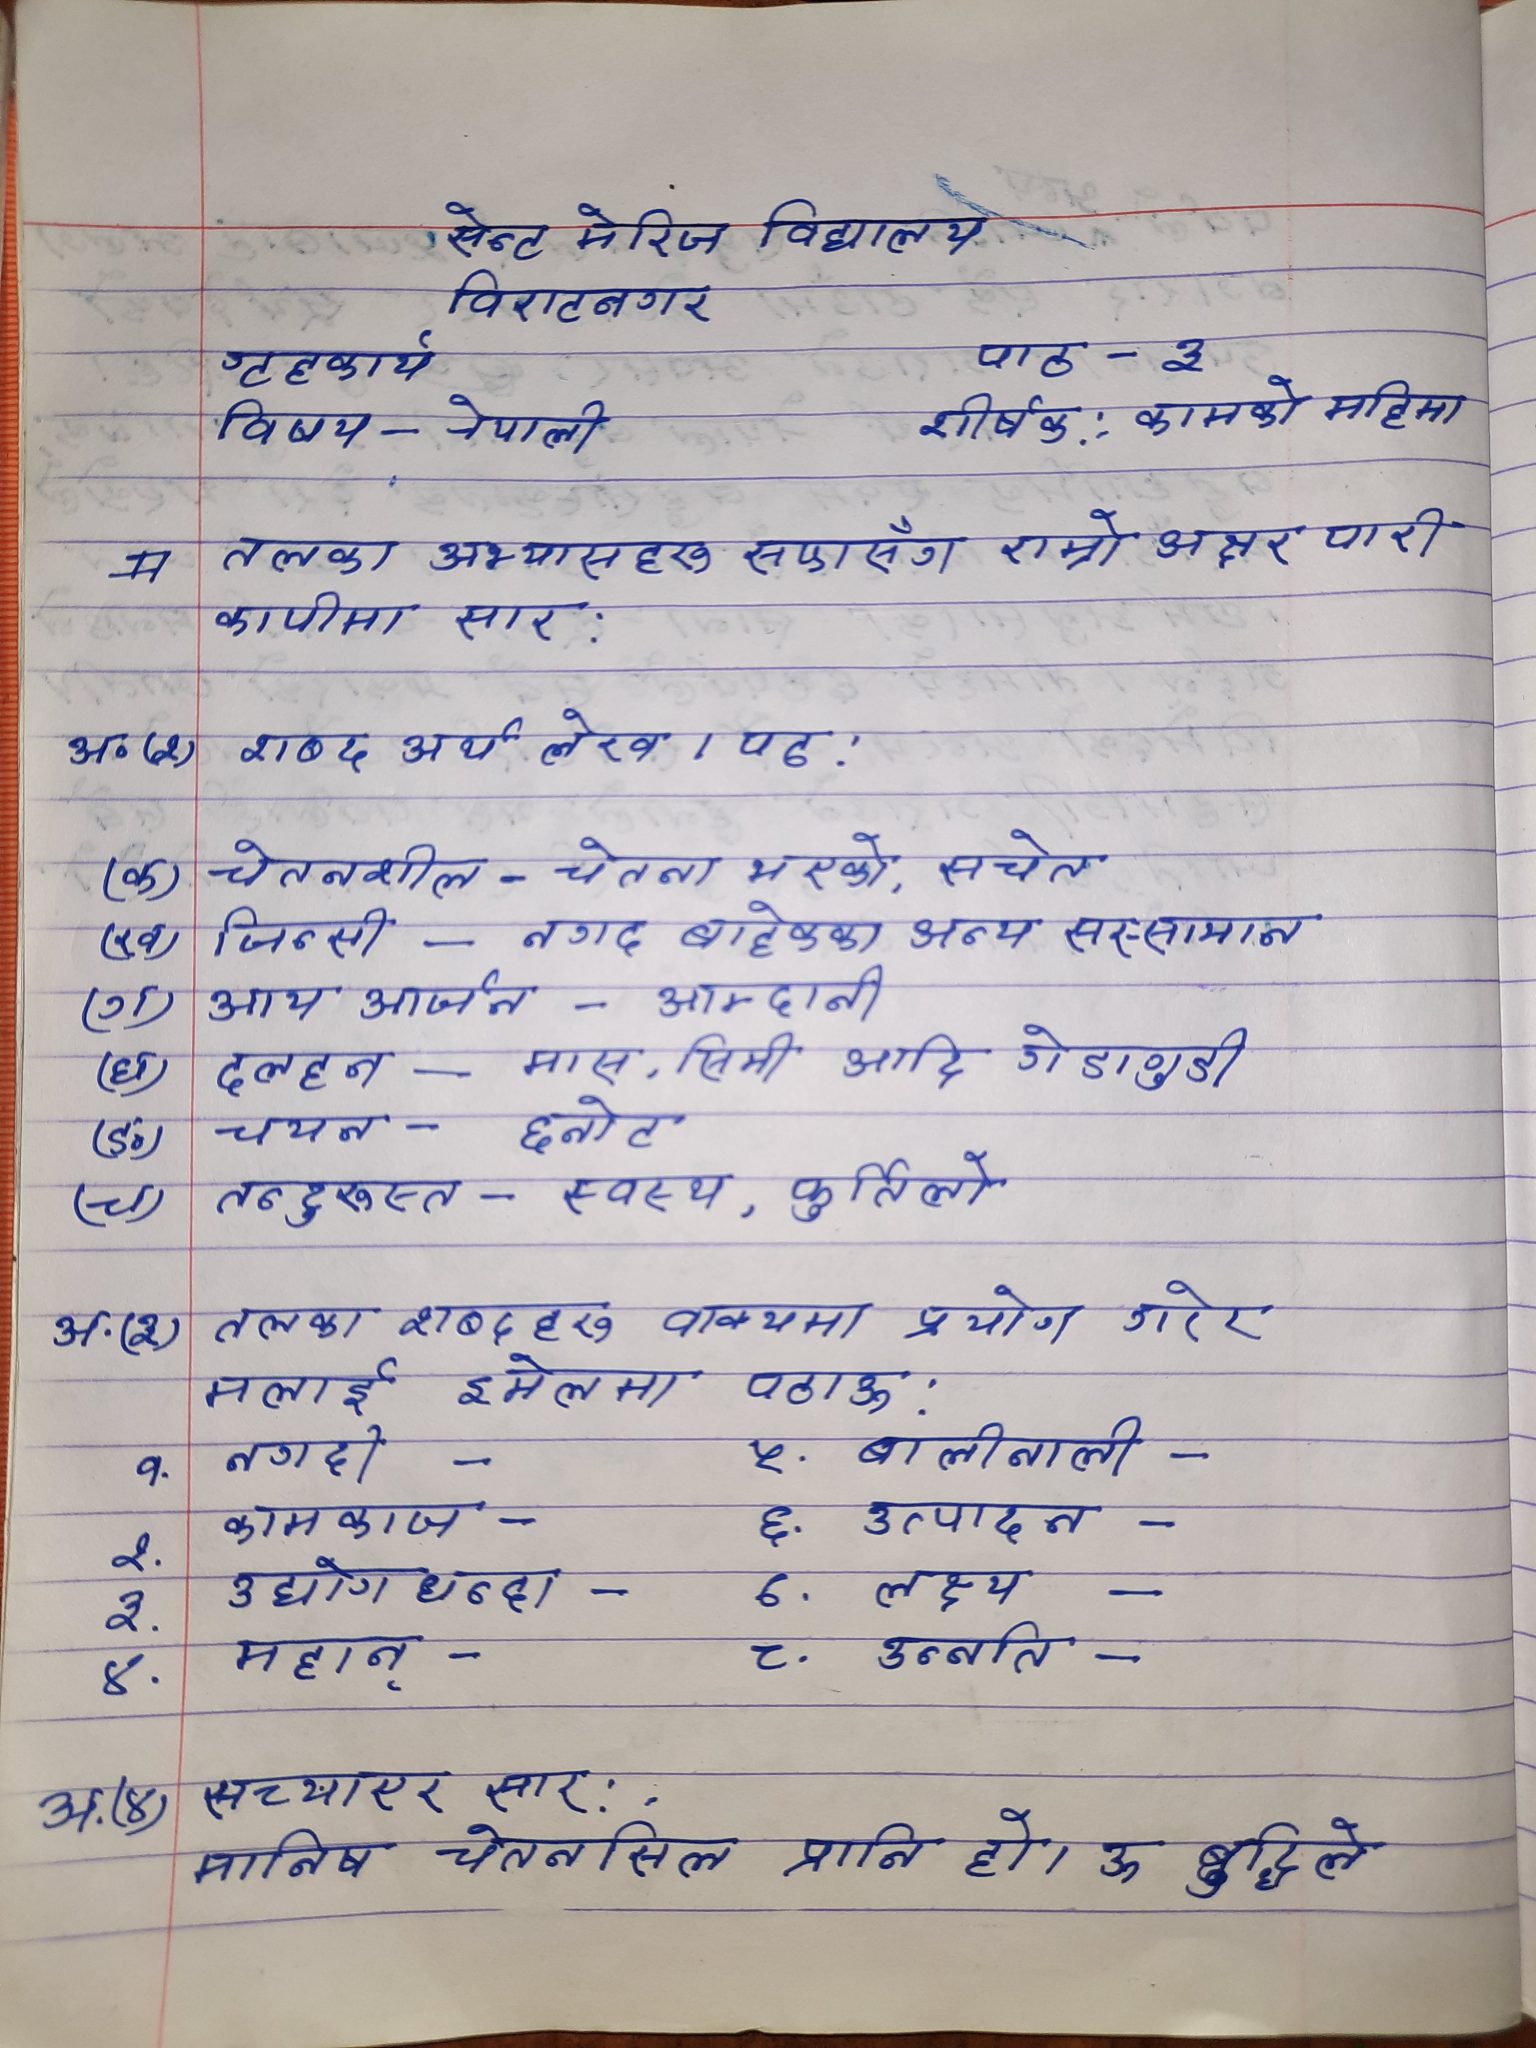 सेन्ट मेरिज विद्यालय
विराटनगर
गृहकार्य पाठ - ३
विषय - नेपाली शीर्षक: कामको महिमा
तलका अभ्यासहरू सफासँग राम्रो अक्षर पारी
कापीमा सार:
अ॰(२) शब्द अर्थ लेख । पढ:
(क) चेतनशील - चेतना भएको, सचेत
(ख) जिन्सी - नगद बाहेकका अन्य सरसामान
(ग) आय आर्जन - आम्दानी
(घ) दलहन - मास, सिमी आदि गेडागुडी
(ङ) चयन - छनोट
(च) तन्दुरूस्त - स्वस्थ, फुर्तिलो
अ.(३) तलका शब्दहरू वाक्यमा प्रयोग गरेर
मलाई इमेलमा पठाऊ:
१. नगदी - ५. बालीनाली -
२. कामकाज - ६. उत्पादन -
३. उद्योगधन्दा - ७. लक्ष्य -
४. महान् - ८. उन्नति -
अ.(४) सच्याएर सार:
मानिष चेतनसिल प्रानि हो। ऊ बुद्धिले